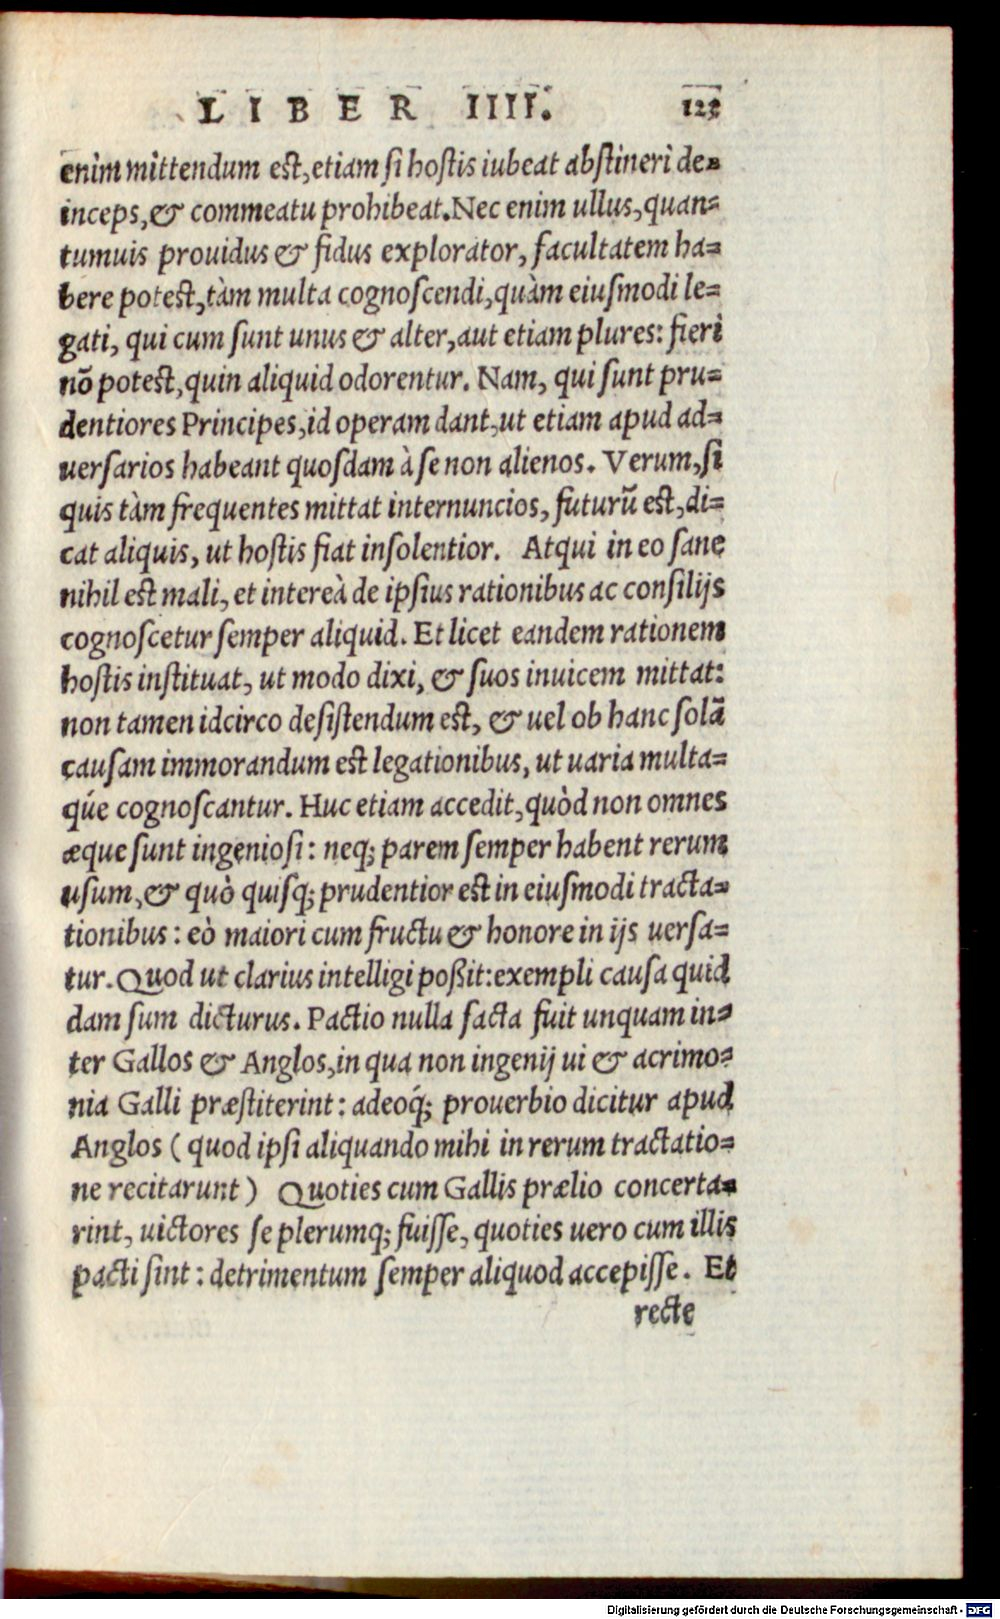 LIBER IIII. 125
enim mittendum est, etiam si hostis iubeat abstineri de=
inceps, & commeatu prohibeat. Nec enim ullus, quan=
tumuis prouidus & fidus explorator, facultatem ha=
bere potest, tàm multa cognoscendi, quàm eiusmodi le=
gati, qui cum sunt unus & alter, aut etiam plures: fieri
nō potest, quin aliquid odorentur. Nam, qui sunt pru=
dentiores Principes, id operam dant, ut etiam apud ad=
uersarios habeant quosdam à se non alienos. Verum, si
quis tàm frequentes mittat internuncios, futurū est, di=
cat aliquis, ut hostis fiat insolentior. Atqui in eo sane
nihil est mali, et intereà de ipsius rationibus ac consilijs
cognoscetur semper aliquid. Et licet eandem rationem
hostis instituat, ut modo dixi, & suos inuicem mittat:
non tamen idcirco desistendum est, & uel ob hanc solā
causam immorandum est legationibus, ut uaria multa=
qúe cognoscantur. Huc etiam accedit, quòd non omnes
æque sunt ingeniosi: neq; parem semper habent rerum
usum, & quò quisq; prudentior est in eiusmodi tracta=
tionibus: eò maiori cum fructu & honore in ijs uersa=
tur. Quod ut clarius intelligi poßit: exempli causa quid
dam sum dicturus. Pactio nulla facta fuit unquam in=
ter Gallos & Anglos, in qua non ingenij ui & acrimo=
nia Galli præstiterint: adeoq́; prouerbio dicitur apud
Anglos (quod ipsi aliquando mihi in rerum tractatio=
ne recitarunt) Quoties cum Gallis prælio concerta=
rint, uictores se plerumq; fuisse, quoties uero cum illis
pacti sint: detrimentum semper aliquod accepisse. Et
recte
Digitalisierung gefördert durch die Deutsche Forschungsgemeinschaft - DFG